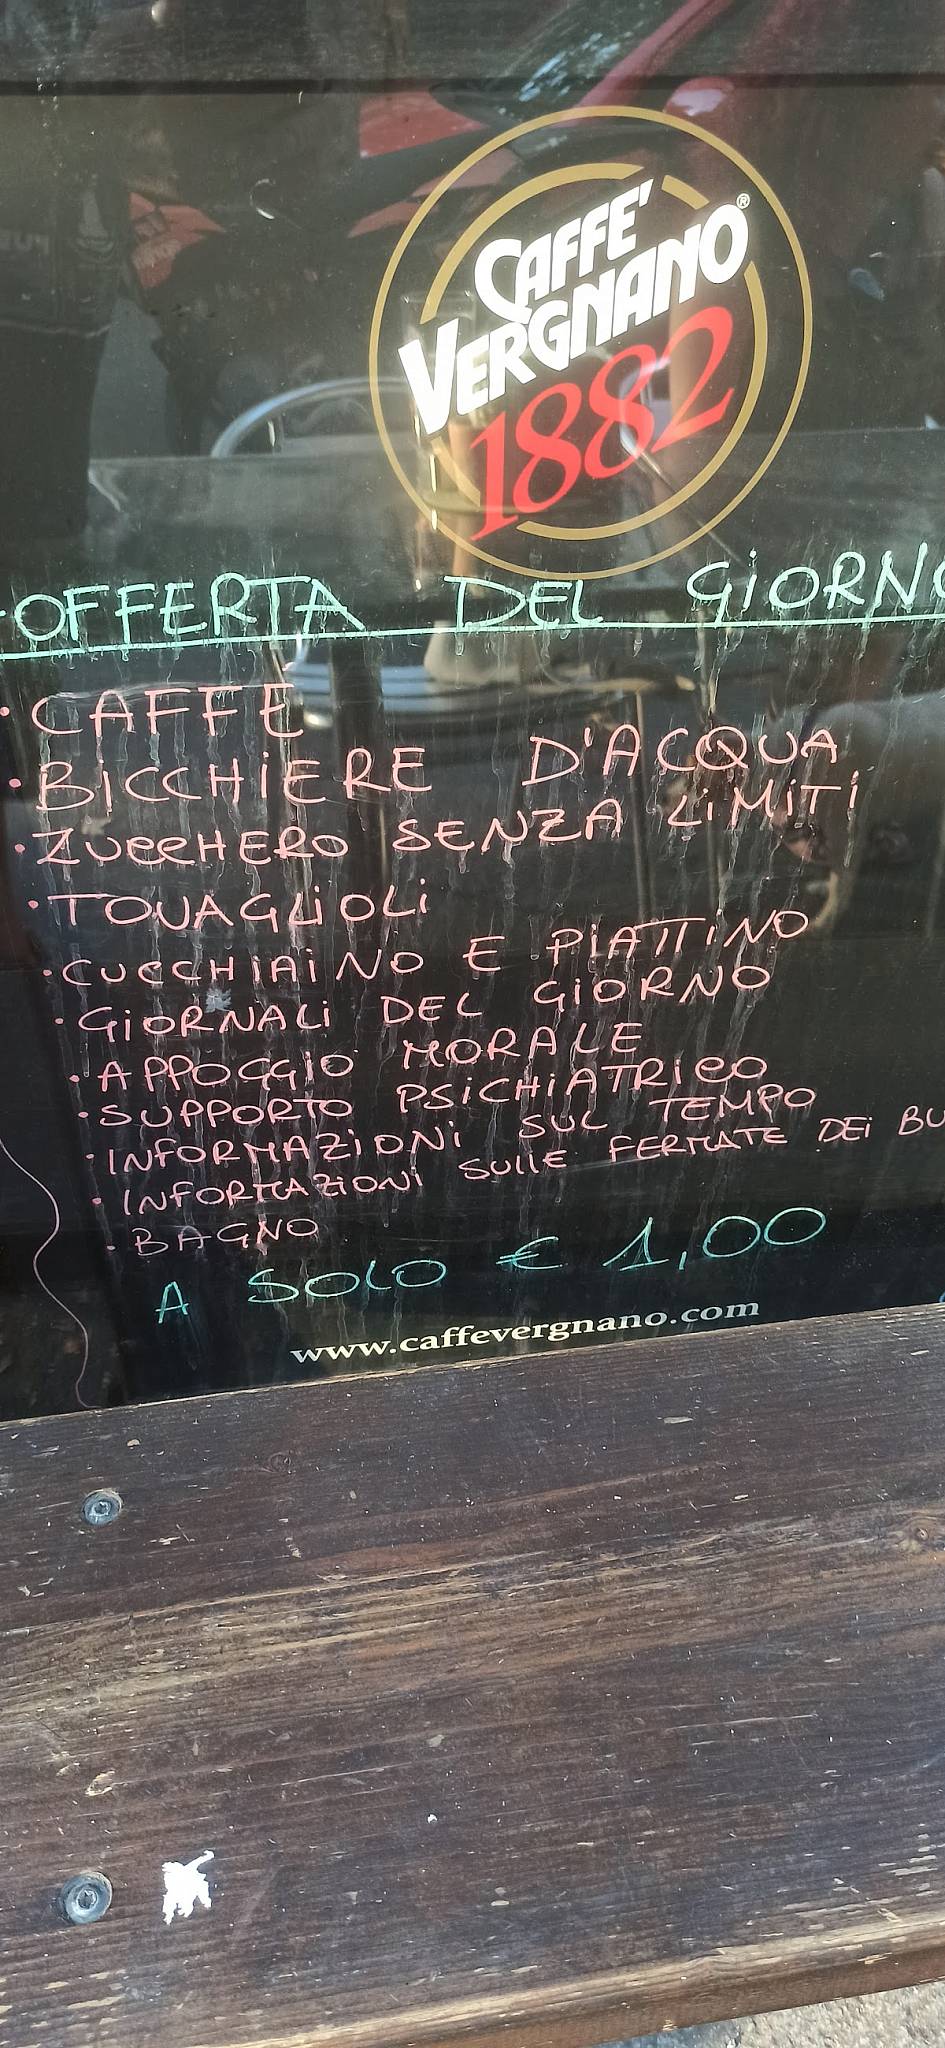 CAFFE'
VERGNANO®
1882
OFFERTA DEL GIORNO
• CAFFE
• BICCHIERE D'ACQUA
• ZUCCHERO SENZA LIMITI
• TOVAGLIOLI
• CUCCHIAINO E PIATTINO
• GIORNALI DEL GIORNO
• APPOGGIO MORALE
• SUPPORTO PSICHIATRICO
• INFORMAZIONI SUL TEMPO
• INFORMAZIONI SULLE FERMATE DEI BU
• BAGNO
A SOLO € 1,00
www.caffevergnano.com